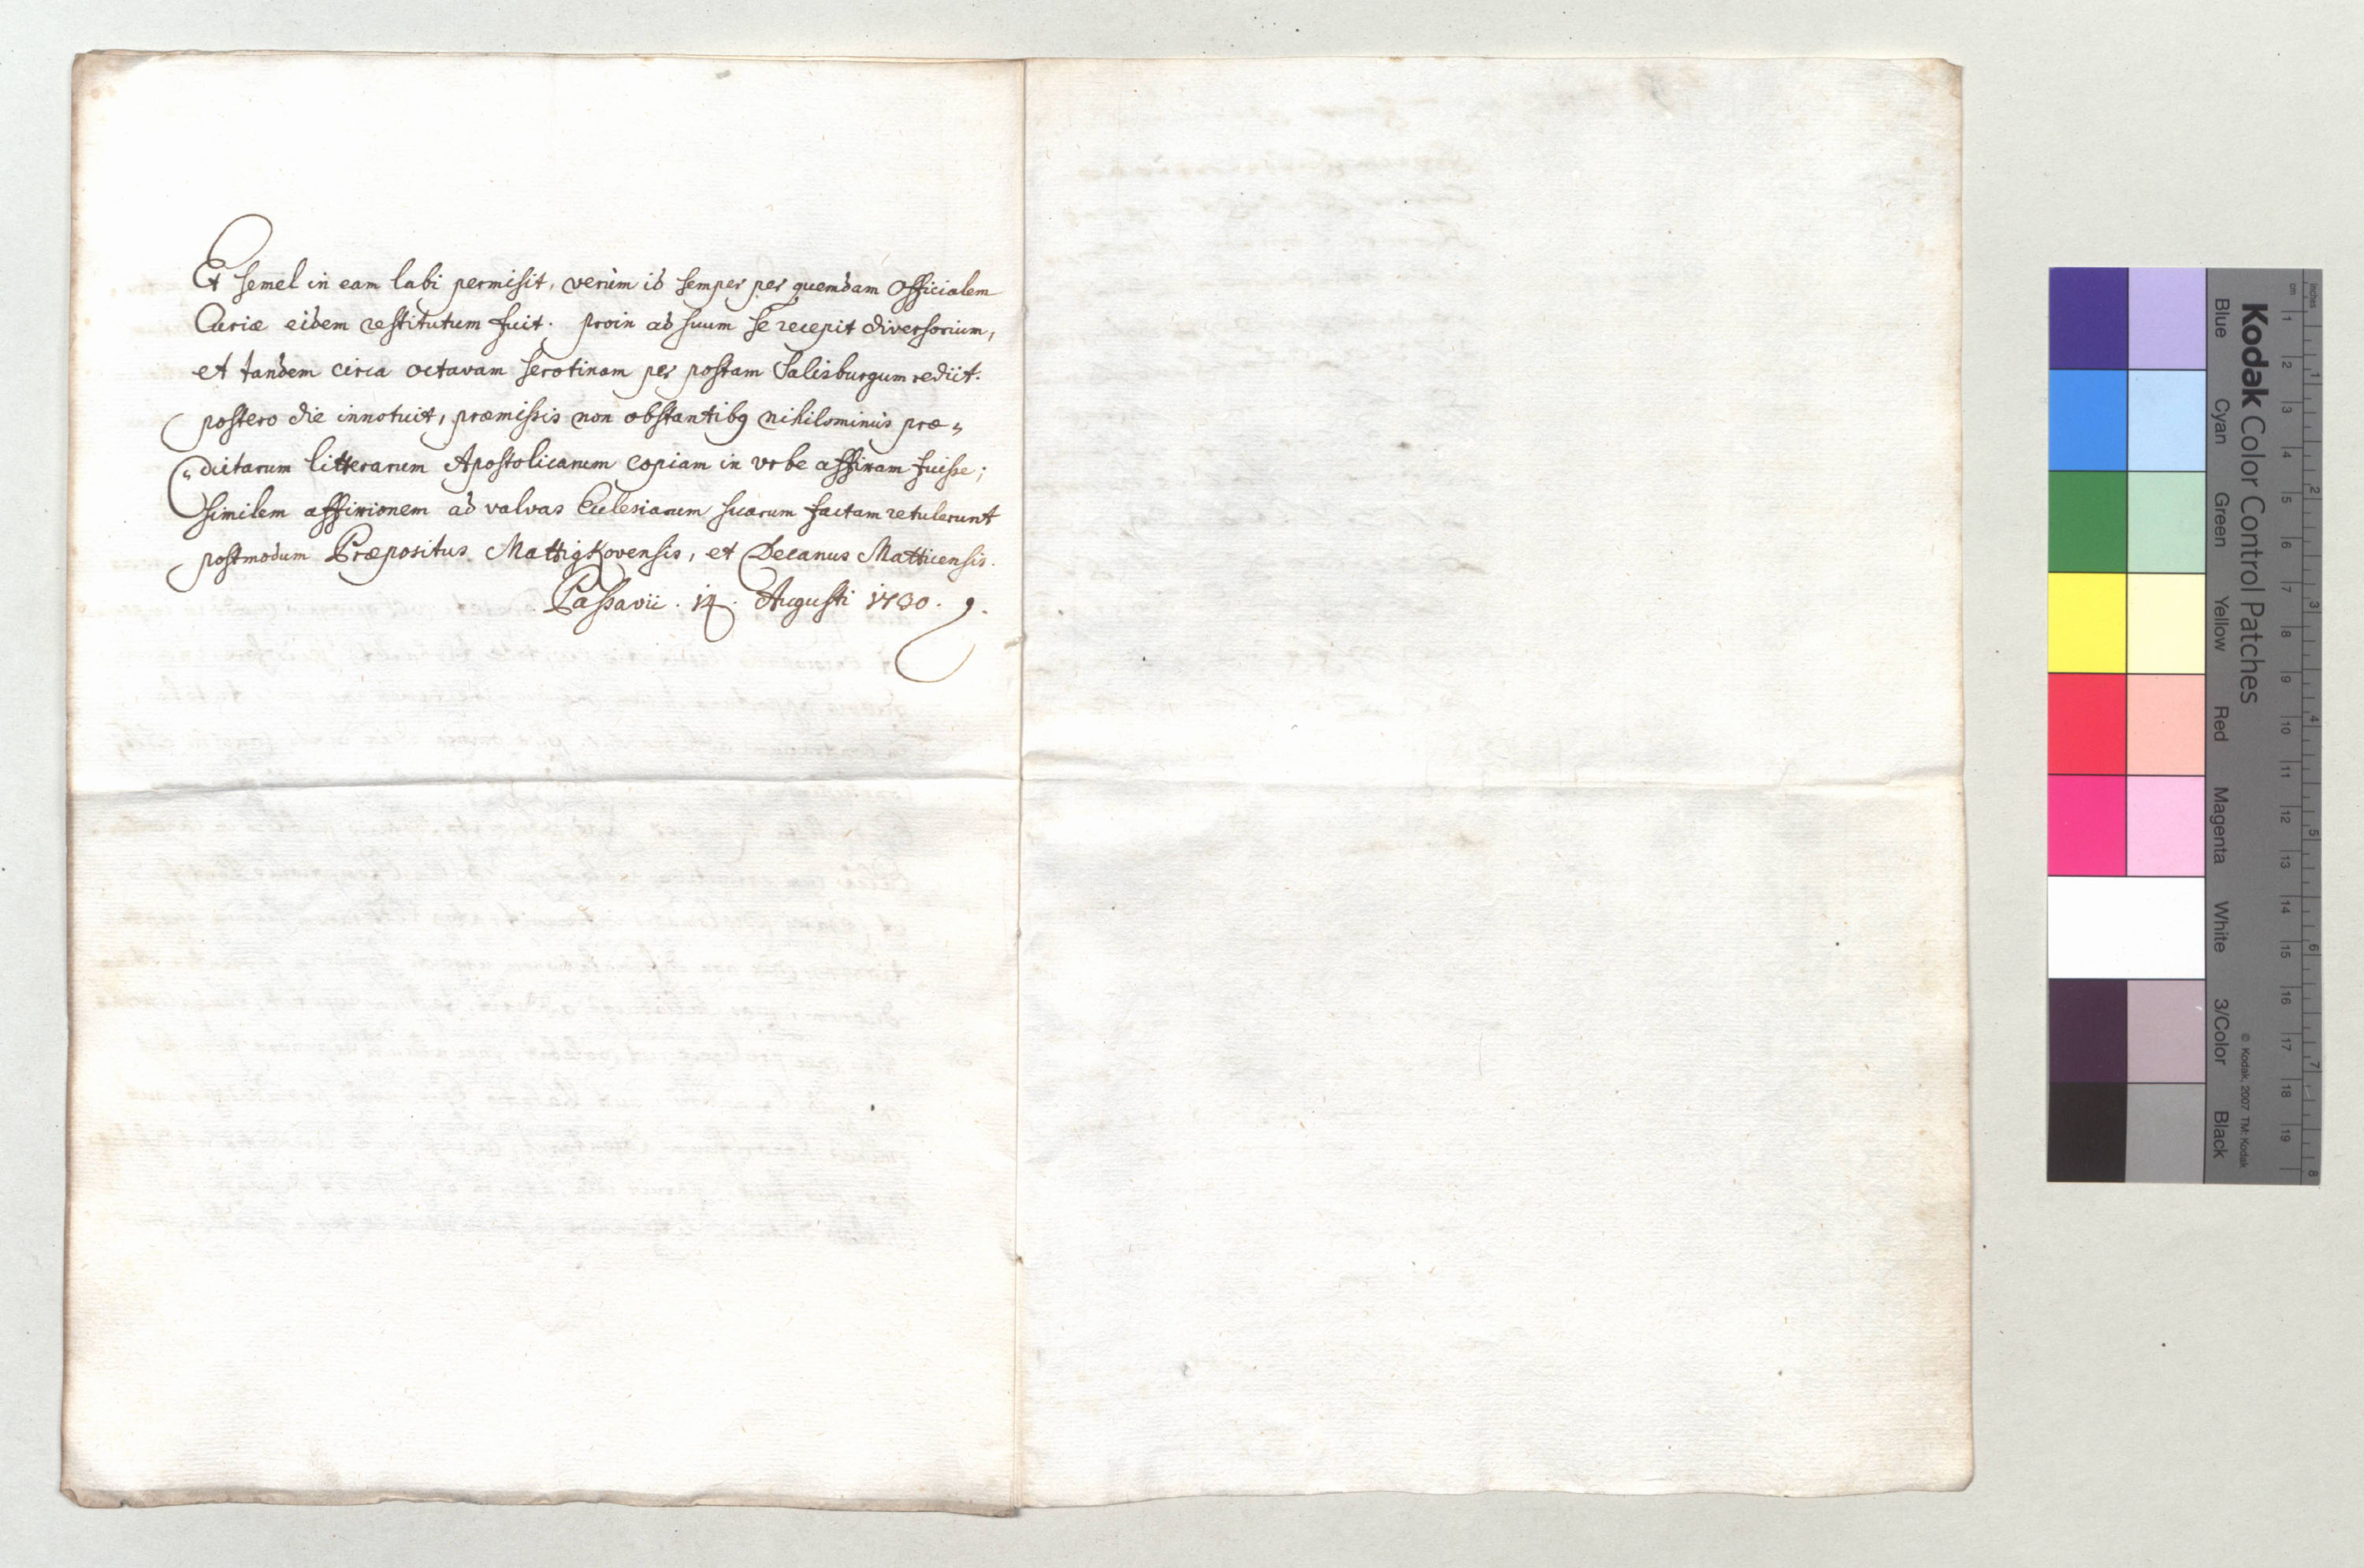 Et semel in eam labi permisit, verùm id semper per quemdam Officialem
Curiæ eidem restitutum fuit. proin ad suum se recepit diversorium,
et tandem circa octavam serotinam per postam Salisburgum rediit.
postero die innotuit, præmissis non obstantibq nihilominùs præ„
„dictarum litterarum Apostolicarum copiam in vrbe affixam fuisse;
similem affixionem ad valvas Ecclesiarum suarum factam retulerunt
postmodum Præpositus Mattigkovensis, et Decanus Matticensis.
Passavii. 14. Augusti 1730.
Kodak Color Control Patches
Blue
Cyan
Green
Yellow
Red
Magenta
White
3/Color
Black
© Kodak, 2007 TM: Kodak
cm 1 2 3 4 5 6 7 8 9 10 11 12 13 14 15 16 17 18 19
inches 1 2 3 4 5 6 7 8